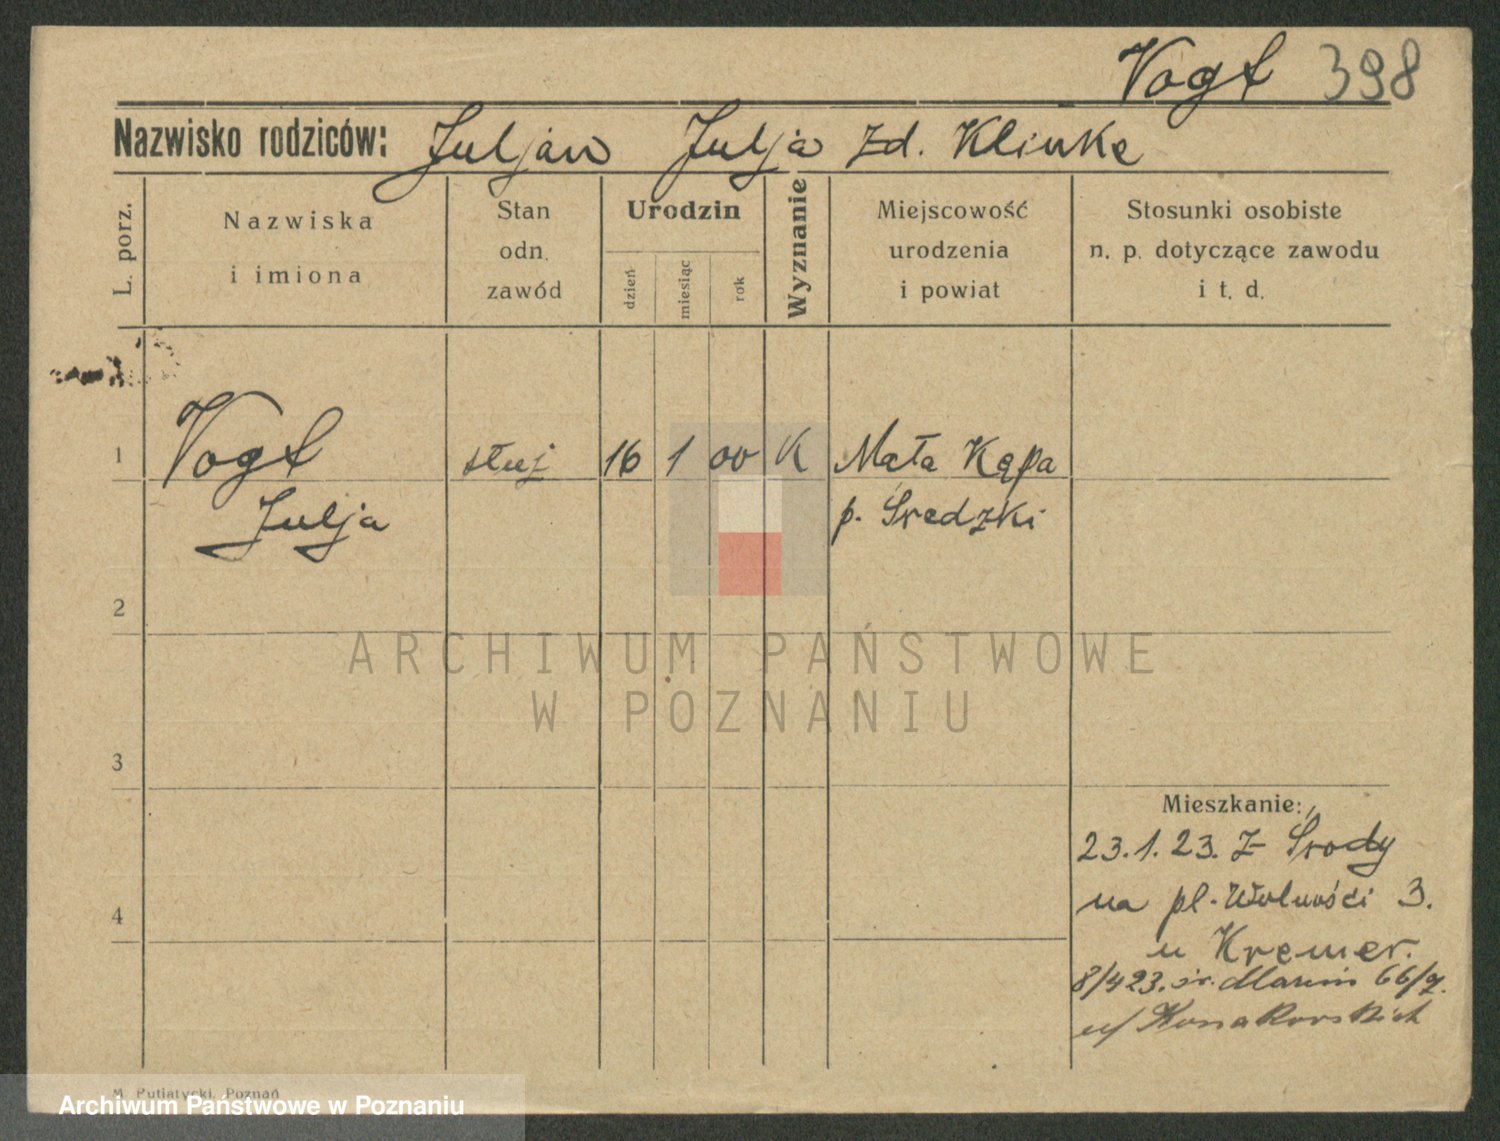 Vogt 398
Nazwisko rodziców: Juljan Julja zd. Klinke
L. porz.
Nazwiska
i imiona
Stan
odn.
zawód
Urodzin
dzień
miesiąc
rok
Wyznanie
Miejscowość
urodzenia
i powiat
Stosunki osobiste
n. p. dotyczące zawodu
i t. d.
1 Vogt służ 16 1 00 K Mała Kępa
Julja p. Średzki
2
ARCHIWUM PAŃSTWOWE
W POZNANIU
3
Mieszkanie:
23.1.23. z Środy
na pl. Wolności 3.
4
u Kremer.
8/4 23. św. Marcin 66/7.
u/
M. Putiatycki, Poznań
Archiwum Państwowe w Poznaniu